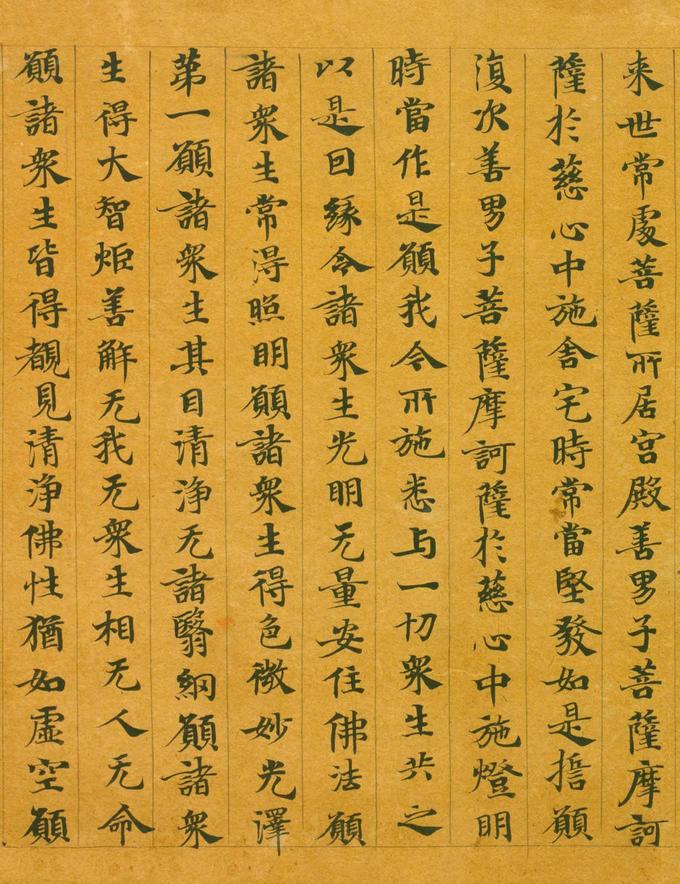 来世常處菩薩所居宮殿善男子菩薩摩訶
薩於慈心中施舍宅時常當堅發如是誓願
復次善男子菩薩摩訶薩於慈心中施燈明
時當作是願我今所施悉与一切衆生共之
以是因緣令諸衆生光明无量安住佛法願
諸衆生常得照明願諸衆生得色微妙光澤
第一願諸衆生其目清浄无諸翳網願諸衆
生得大智炬善解无我无衆生相无人无命
願諸衆生皆得覩見清浄佛性猶如虛空願